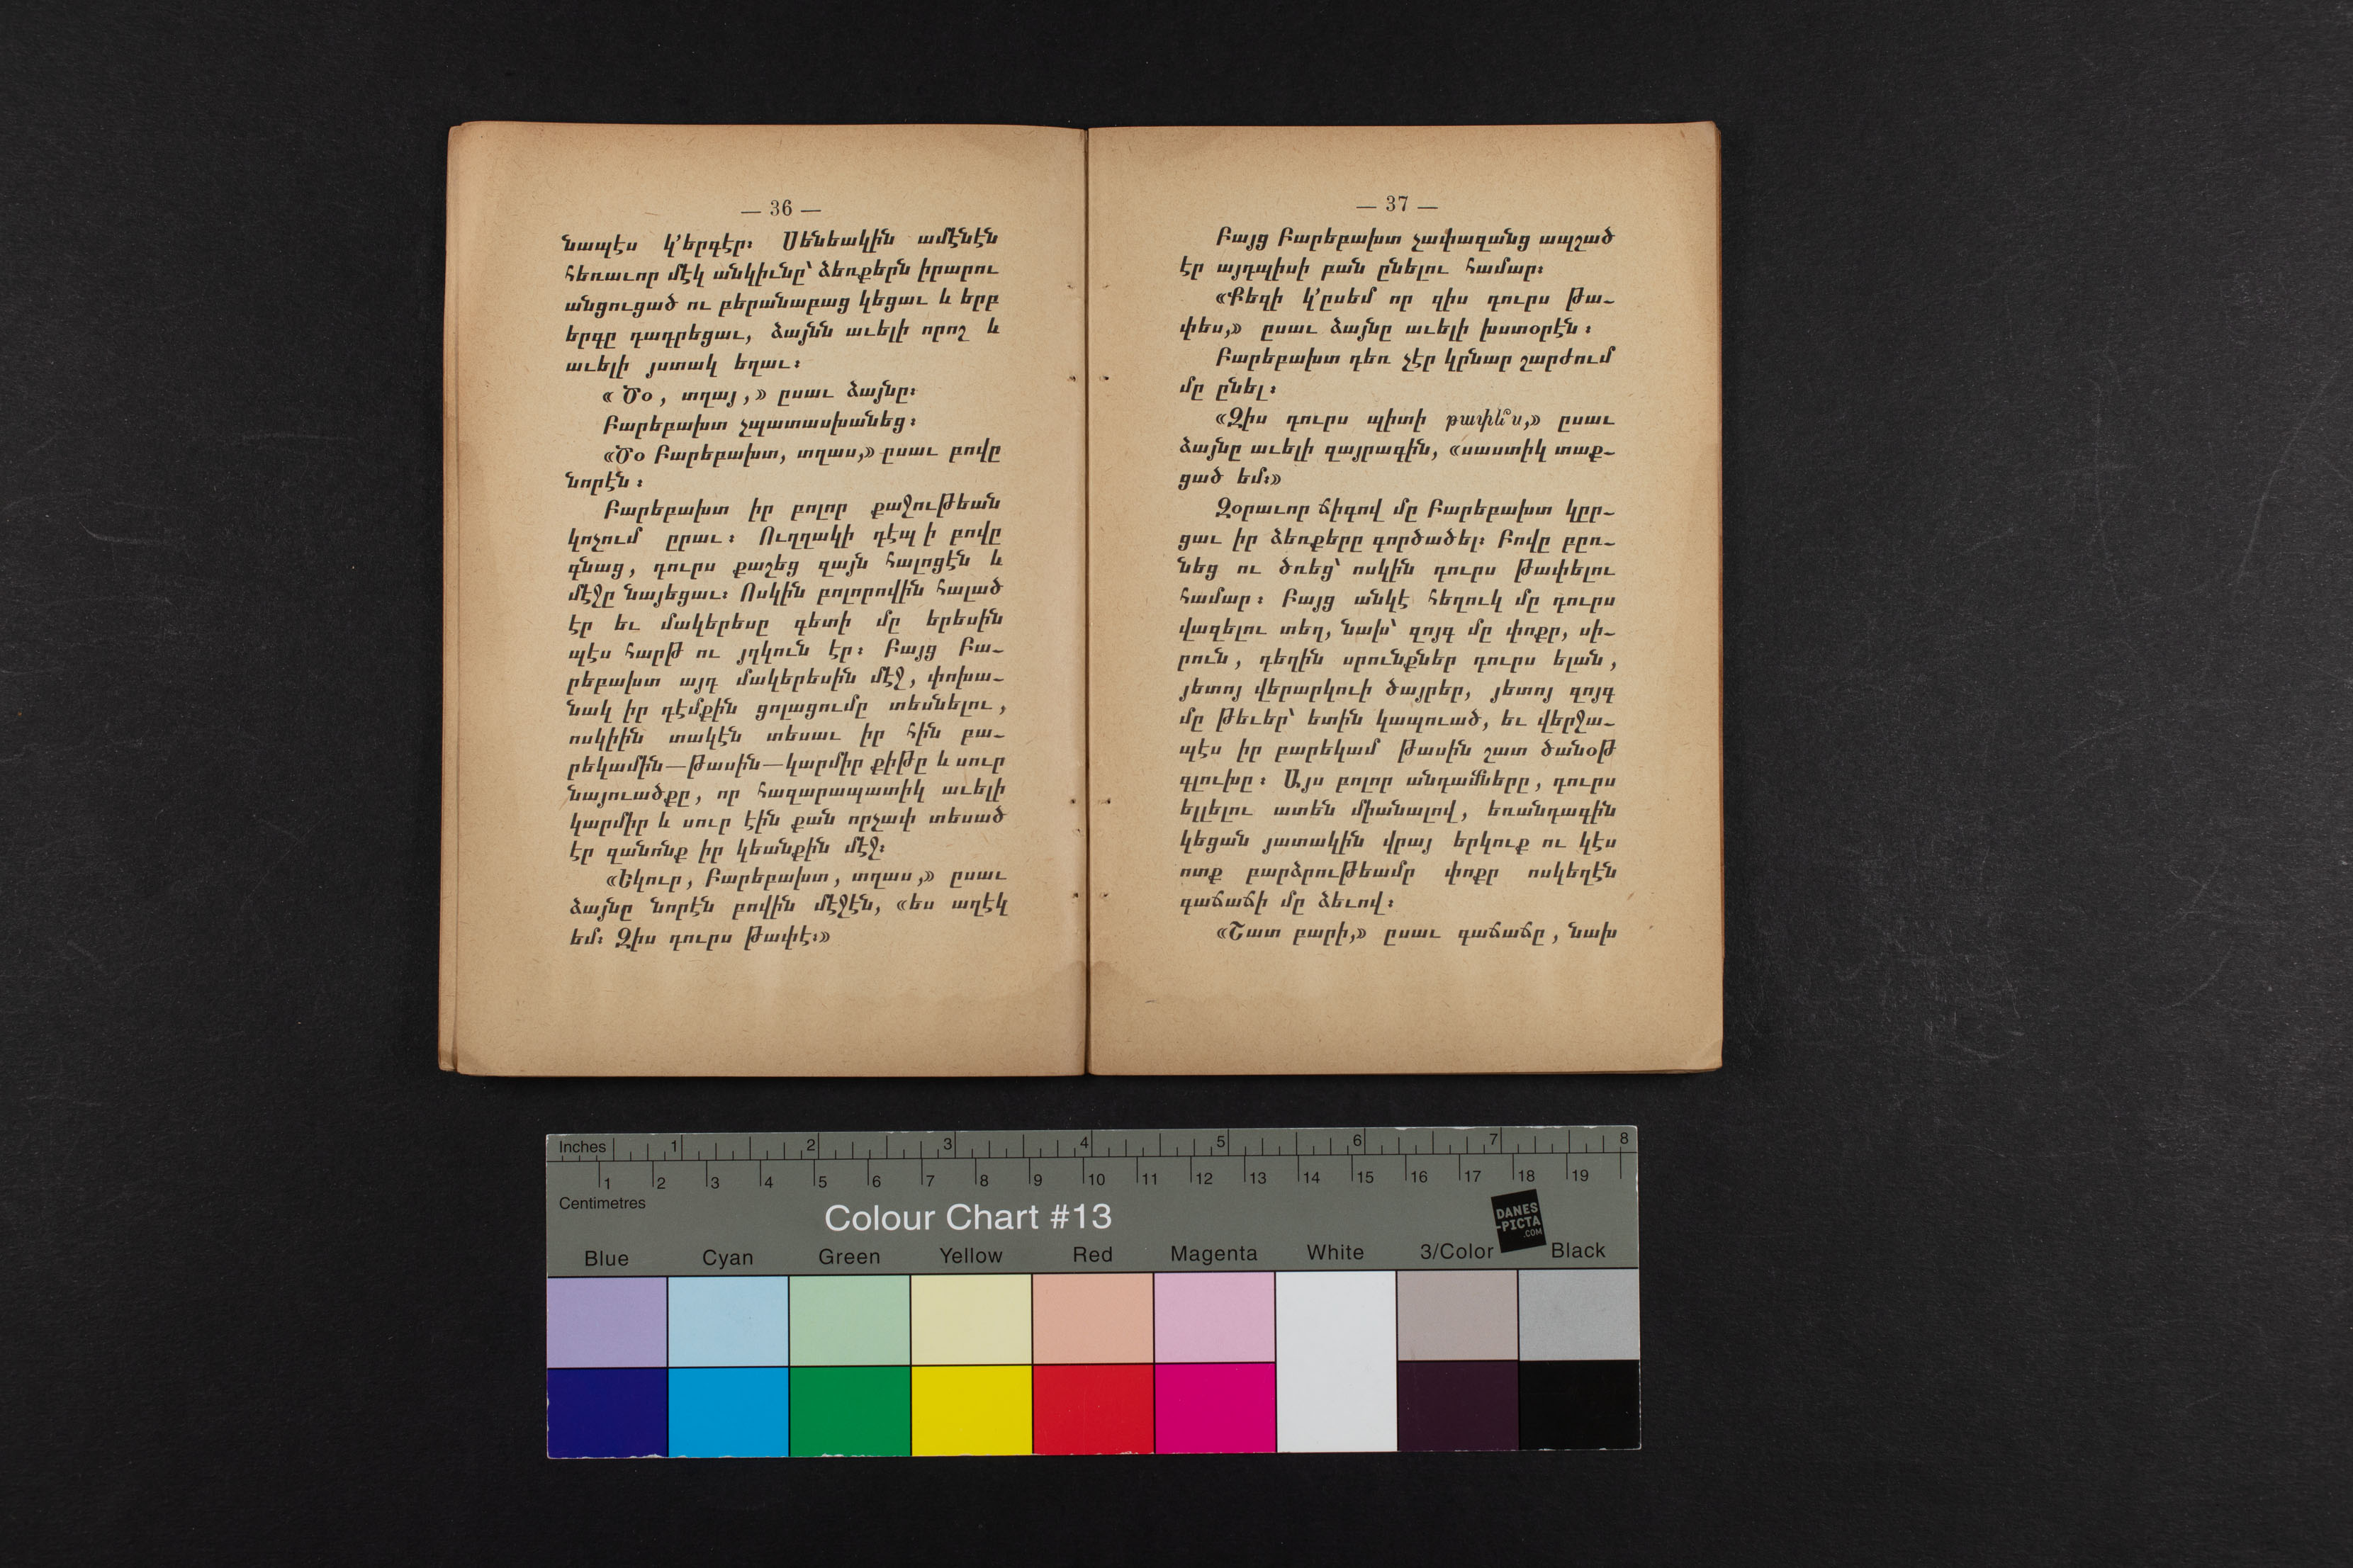 — 36 —
նապէս կ՚երգէր։ Սենեակին ամէնէն
հեռաւոր մէկ անկիւնը՝ ձեռքերն իրարու
անցուցած ու բերանաբաց կեցաւ և երբ
երգը դադրեցաւ, ձայնն աւելի որոշ և
աւելի յստակ եղաւ։
«Ծօ, տղայ,» ըսաւ ձայնը։
Բարեբախտ չպատասխանեց։
«Ծօ Բարեբախտ, տղաս,» ըսաւ բովը
նորէն։
Բարեբախտ իր բոլոր քաջութեան
կոչում ըրաւ։ Ուղղակի դէպ ի բովը
գնաց, դուրս քաշեց զայն հալոցէն և
մէջը նայեցաւ։ Ոսկին բոլորովին հալած
էր եւ մակերեսը գետի մը երեսին
պէս հարթ ու յղկուն էր։ Բայց Բա-
րեբախտ այդ մակերեսին մէջ, փոխա-
նակ իր դէմքին ցոլացումը տեսնելու,
ոսկիին տակէն տեսաւ իր հին բա-
րեկամին—Թասին—կարմիր քիթը և սուր
նայուածքը, որ հազարապատիկ աւելի
կարմիր և սուր էին քան որչափ տեսած
էր զանոնք իր կեանքին մէջ։
«Եկուր, Բարեբախտ, տղաս,» ըսաւ
ձայնը նորէն բովին մէջէն, «ես աղէկ
եմ։ Զիս դուրս թափէ։»
— 37 —
Բայց Բարեբախտ չափազանց ապշած
էր այդպիսի բան ընելու համար։
«Քեզի կ՚ըսեմ որ զիս դուրս թա-
փես,» ըսաւ ձայնը աւելի խստօրէն։
Բարեբախտ դեռ չէր կրնար շարժում
մը ընել։
«Զիս դուրս պիտի թափե՞ս,» ըսաւ
ձայնը աւելի զայրագին, «սաստիկ տաք-
ցած եմ։»
Զօրաւոր ճիգով մը Բարեբախտ կըր-
ցաւ իր ձեռքերը գործածել։ Բովը բըռ-
նեց ու ծռեց՝ ոսկին դուրս թափելու
համար։ Բայց անկէ հեղուկ մը դուրս
վազելու տեղ, նախ՝ զոյգ մը փոքր, սի-
րուն, դեղին սրունքներ դուրս ելան,
յետոյ վերարկուի ծայրեր, յետոյ զոյգ
մը թեւեր՝ ետին կապուած, եւ վերջա-
պէս իր բարեկամ Թասին շատ ծանօթ
գլուխը։ Այս բոլոր անդամները, դուրս
ելլելու ատեն միանալով, եռանդագին
կեցան յատակին վրայ երկուք ու կէս
ոտք բարձրութեամբ փոքր ոսկեղէն
գաճաճի մը ձեւով։
«Շատ բարի,» ըսաւ գաճաճը, նախ
Inches 1 2 3 4 5 6 7 8
1 2 3 4 5 6 7 8 9 10 11 12 13 14 15 16 17 18 19
Centimetres
Colour Chart #13
DANES
-PICTA
.COM
Blue Cyan Green Yellow Red Magenta White 3/Color Black